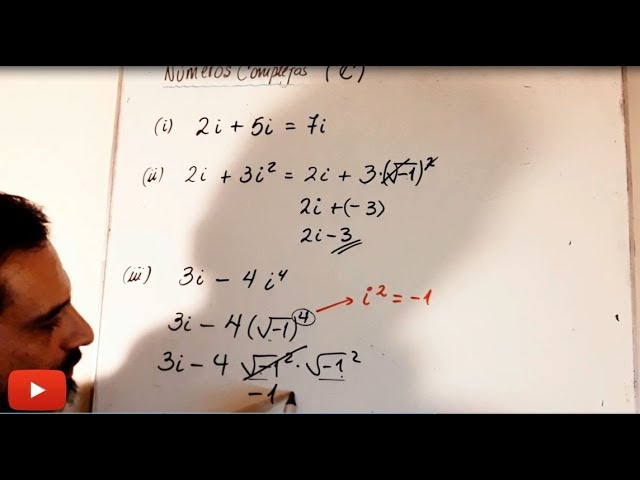 Números Complejos (ℂ)
(i) 2i + 5i = 7i
(ii) 2i + 3i² = 2i + 3·(√-1)²
2i + (-3)
2i - 3
(iii) 3i - 4i⁴
3i - 4(√-1)⁴ → i² = -1
3i - 4 √-1² · √-1²
-1